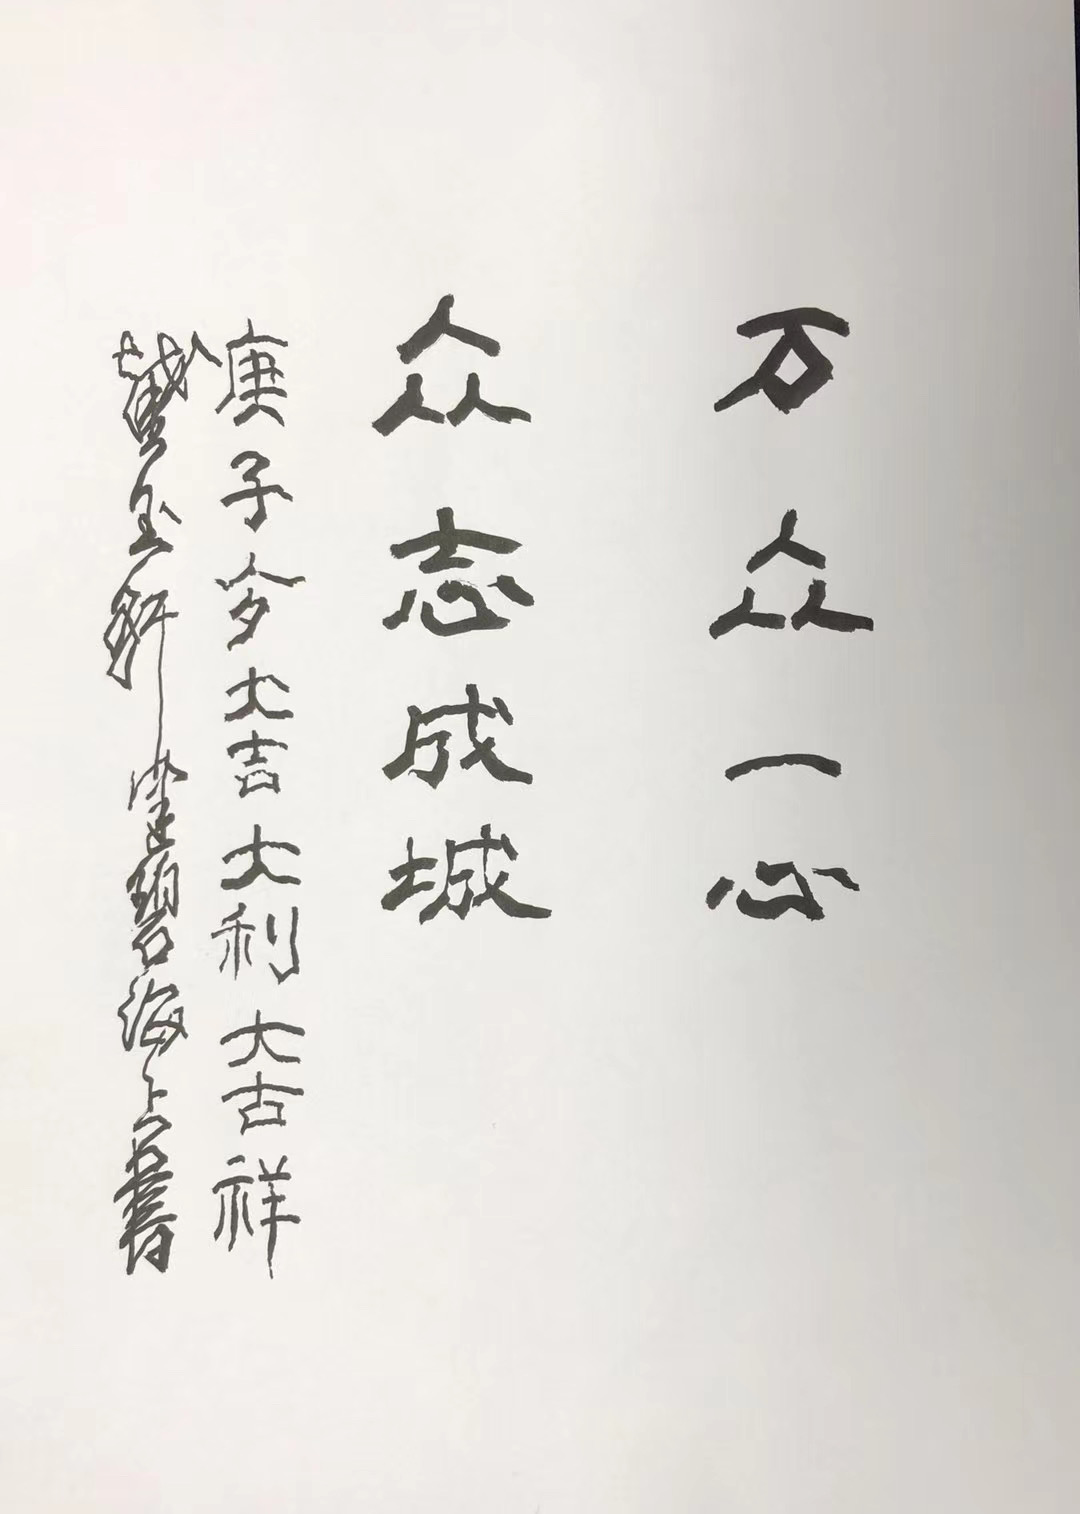 万众一心
众志成城
庚子年大吉大利大吉祥
玉轩 碧海上书